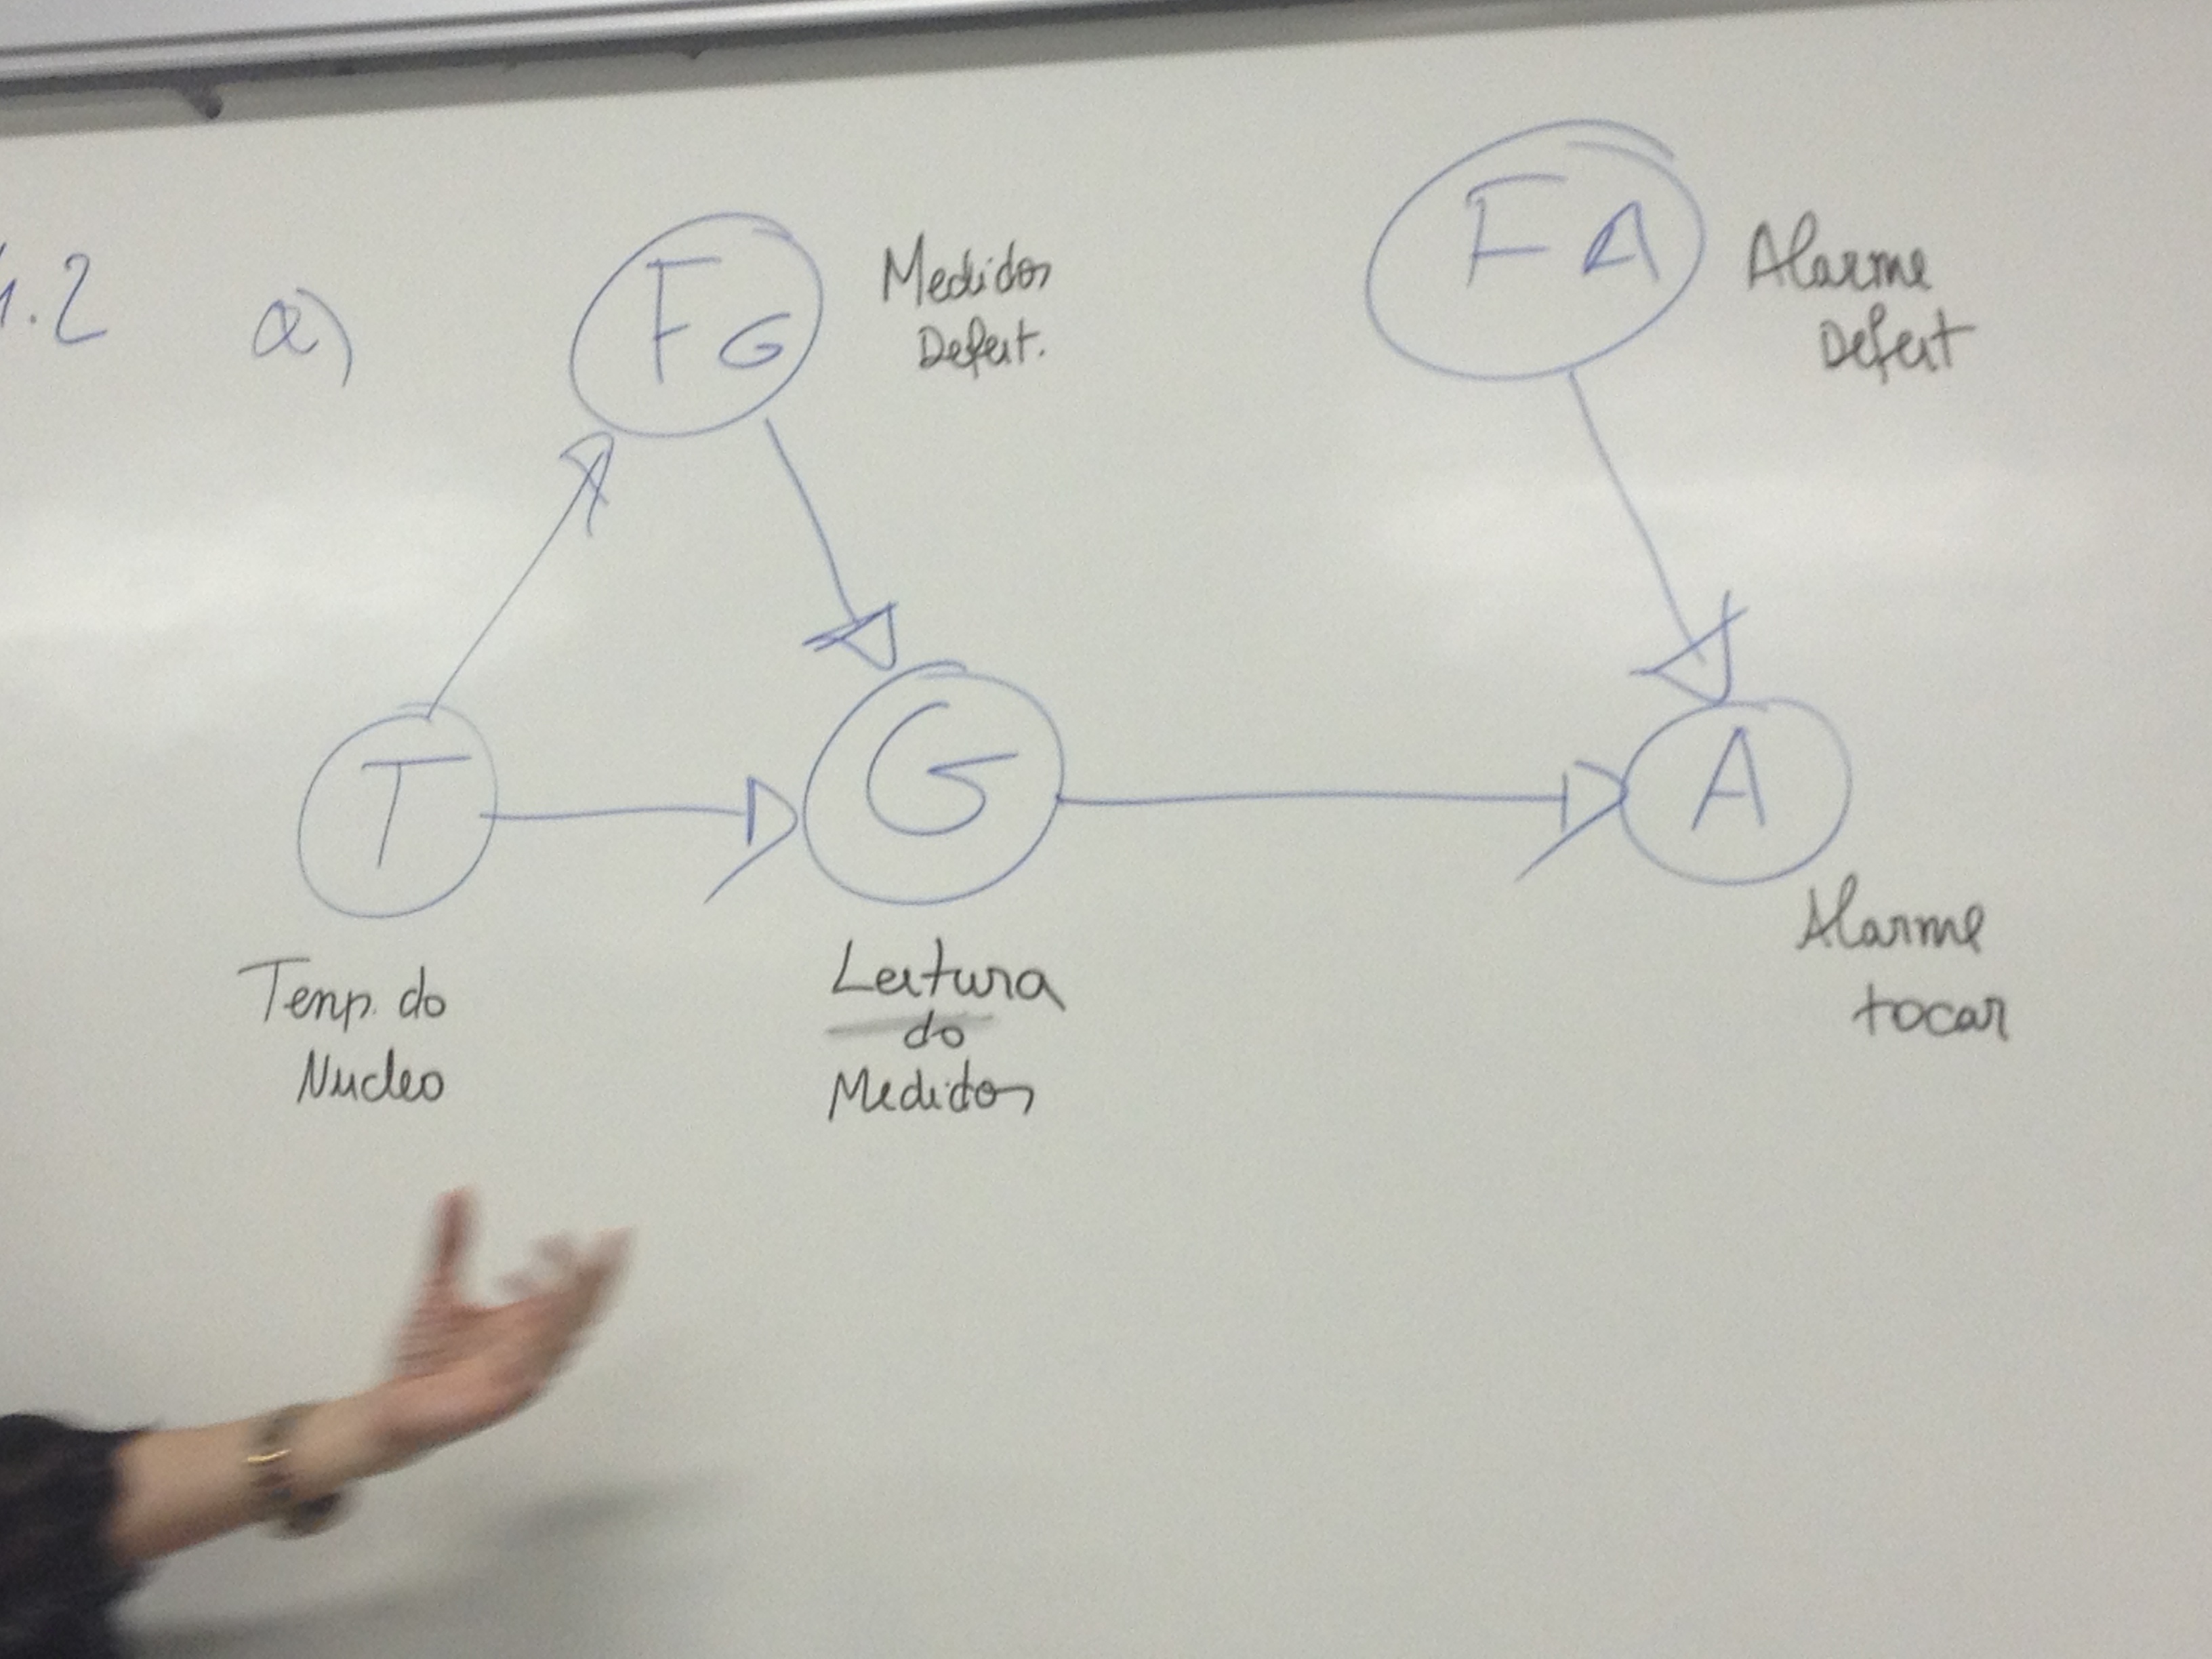 1.2 a)
FG
Medidor
Defeit.
FA
Alarme
Defeit
T
G
A
Temp. do
Nucleo
Leitura
do
Medidor
Alarme
tocar